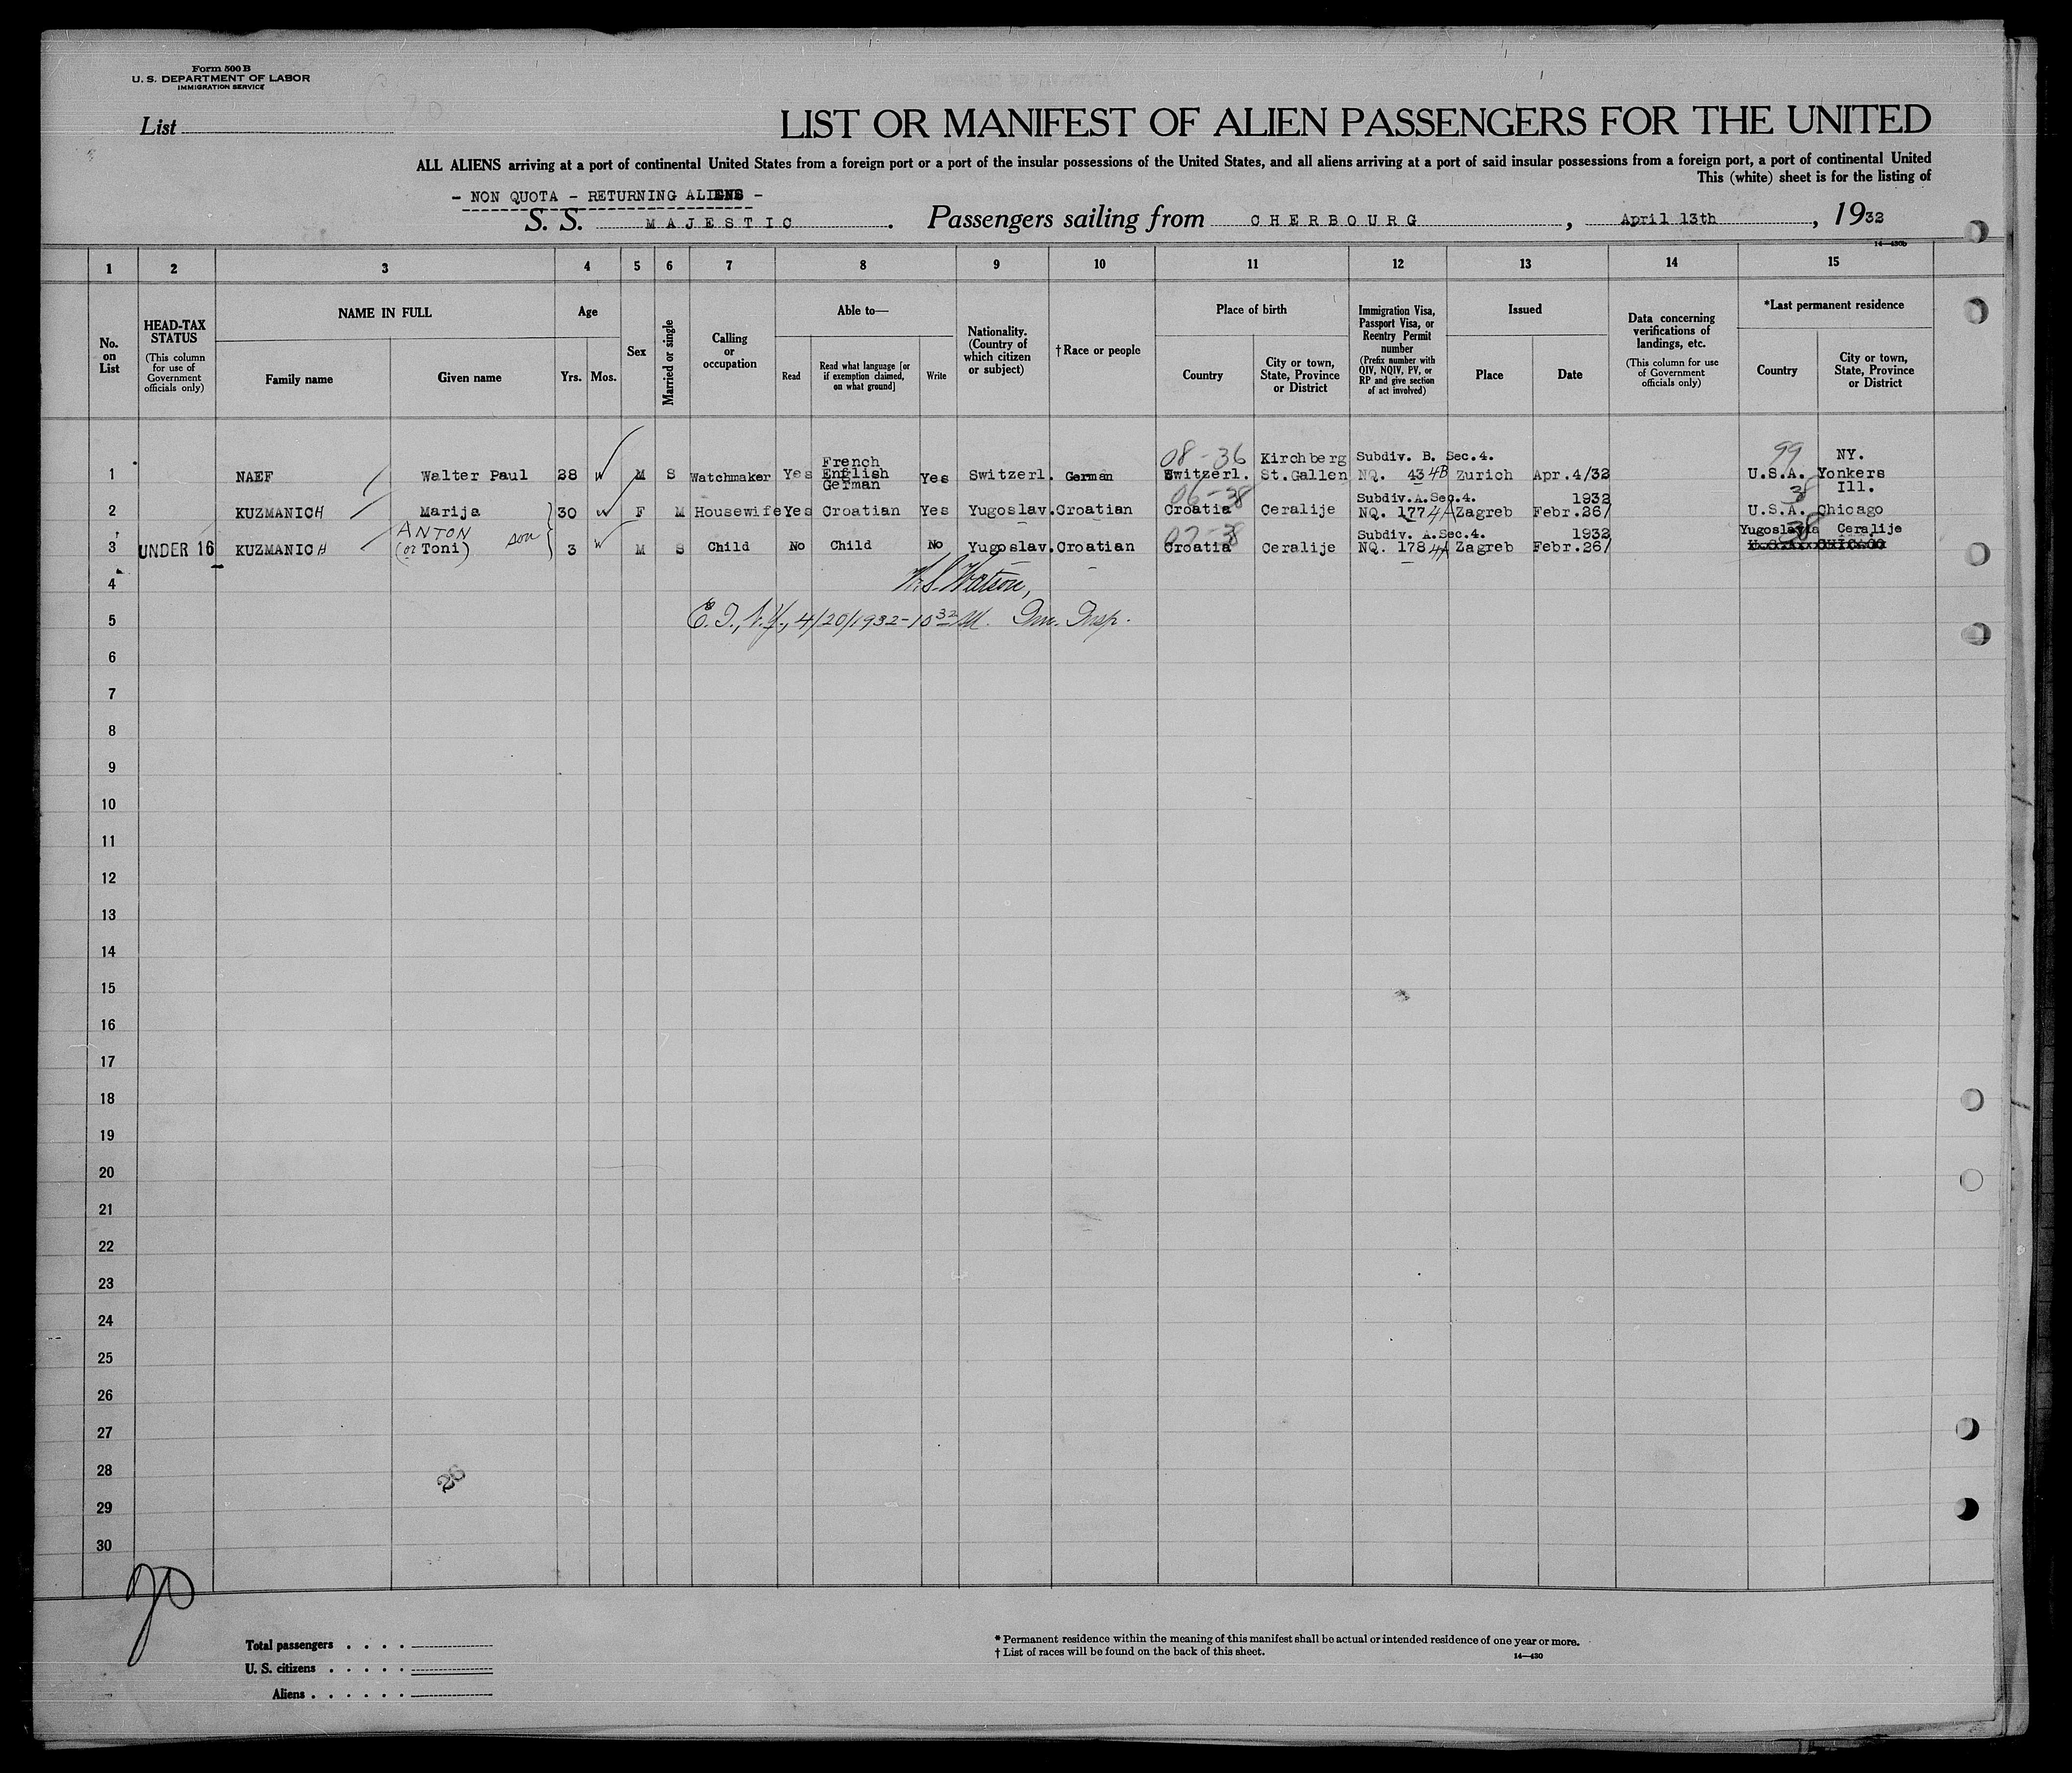 Form 500 B
U. S. DEPARTMENT OF LABOR
IMMIGRATION SERVICE
List
LIST OR MANIFEST OF ALIEN PASSENGERS FOR THE UNITED
ALL ALIENS arriving at a port of continental United States from a foreign port or a port of the insular possessions of the United States, and all aliens arriving at a port of said insular possessions from a foreign port, a port of continental United
This (white) sheet is for the listing of
- NON QUOTA - RETURNING ALIENS -
S. S. MAJESTIC. Passengers sailing from CHERBOURG, April 13th, 1932
14—430b
1 2 3 4 5 6 7 8 9 10 11 12 13 14 15
No. on List
HEAD-TAX STATUS
(This column for use of Government officials only)
NAME IN FULL
Family name
Given name
Age
Yrs. Mos.
Sex
Married or single
Calling or occupation
Able to—
Read
Read what language [or if exemption claimed, on what ground]
Write
Nationality. (Country of which citizen or subject)
† Race or people
Place of birth
Country
City or town, State, Province or District
Immigration Visa, Passport Visa, or Reentry Permit number
(Prefix number with QIV, NQIV, PV, or RP and give section of act involved)
Issued
Place
Date
Data concerning verifications of landings, etc.
(This column for use of Government officials only)
*Last permanent residence
Country
City or town, State, Province or District
French 08-36 Kirchberg Subdiv. B. Sec.4. 99 NY.
1 NAEF Walter Paul 28 W M S Watchmaker Yes English Yes Switzerl. German Switzerl. St.Gallen NQ. 43 4B Zurich Apr.4/32 U.S.A. Yonkers
German 06-38 Subdiv.A.Sec.4. 1932 38 Ill.
2 KUZMANICH Marija 30 W F M Housewife Yes Croatian Yes Yugoslav. Croatian Croatia Ceralije NQ. 177 4A Zagreb Febr.26/ U.S.A. Chicago
ANTON son 07-38 Subdiv. A.Sec.4. 1932 Yugoslavia Ceralije 38
3 UNDER 16 KUZMANICH (or Toni) 3 W M S Child No Child No Yugoslav. Croatian Croatia Ceralije NQ. 178 4A Zagreb Febr.26/
4 W.S. Watson,
5 E.I., N.Y., 4/20/1932-10 32 M. Imm. Insp.
6
7
8
9
10
11
12
13
14
15
16
17
18
19
20
21
22
23
24
25
26
27
28 26
29
30
Total passengers . . . .
U. S. citizens . . . . .
Aliens . . . . . .
* Permanent residence within the meaning of this manifest shall be actual or intended residence of one year or more.
† List of races will be found on the back of this sheet.
14—430